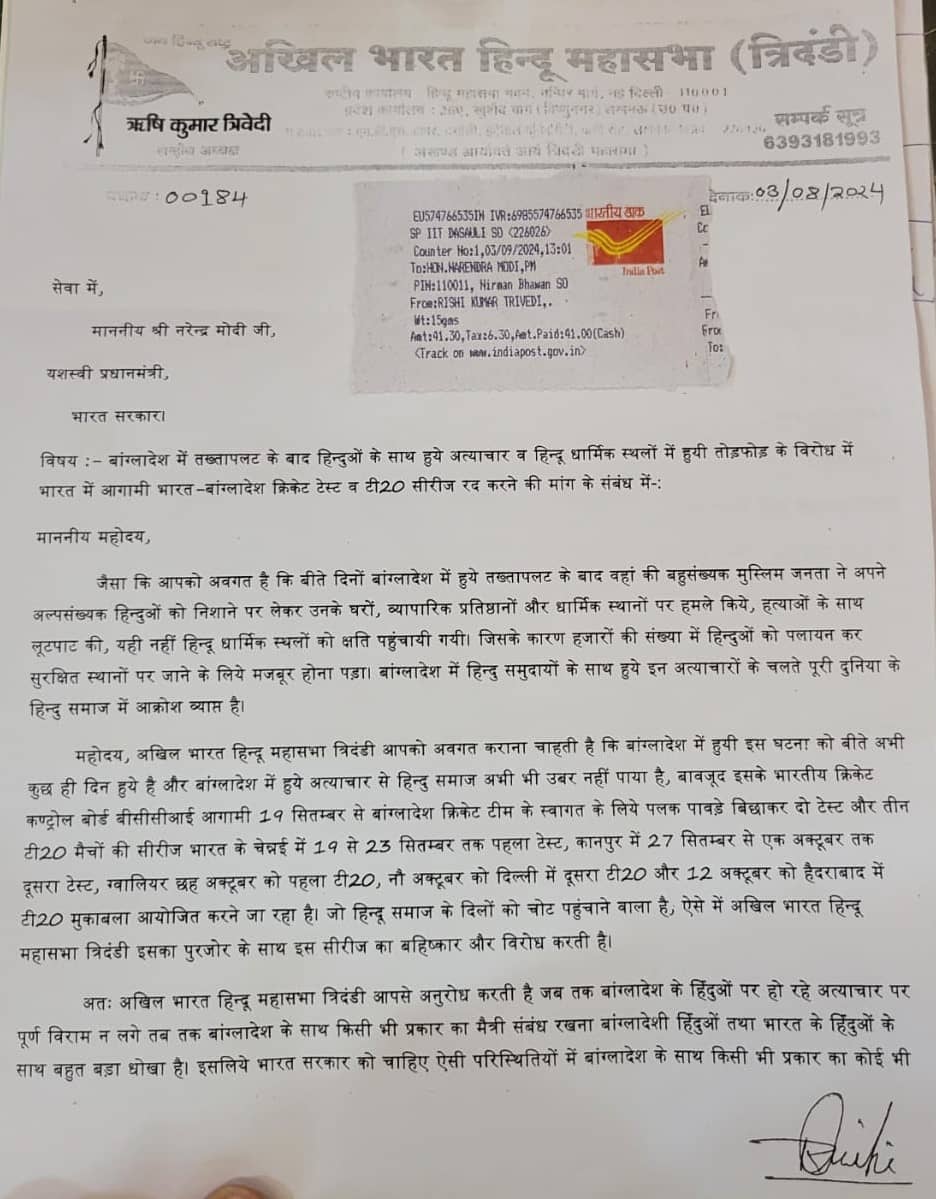 जय हिन्दू राष्ट्र
अखिल भारत हिन्दू महासभा (त्रिदंडी)
राष्ट्रीय कार्यालय हिन्दू महासभा भवन, मन्दिर मार्ग, नई दिल्ली 110001
प्रदेश कार्यालय : 260, खुर्शेद बाग (विष्णुनगर) लखनऊ (उ० प्र०)
ऋषि कुमार त्रिवेदी
राष्ट्रीय अध्यक्ष
सम्पर्क सूत्र
6393181993
( अखण्ड आर्यावर्त आर्य त्रिदंडी महासभा )
पत्रांक : 00184
दिनांक: 03/08/2024
EU574766535IN IVR:6985574766535 भारतीय डाक
SP IIT DASAULI SO <226026>
Counter No:1,03/09/2024,13:01
To:HON.NARENDRA MODI,PM
PIN:110011, Nirman Bhawan SO
India Post
From:RISHI KUMAR TRIVEDI,.
Wt:15gms
Amt:41.30,Tax:6.30,Amt.Paid:41.00(Cash)
<Track on www.indiapost.gov.in>
El
Cc
Am
Fr
Fro
To:
सेवा में,
माननीय श्री नरेन्द्र मोदी जी,
यशस्वी प्रधानमंत्री,
भारत सरकार।
विषय :- बांग्लादेश में तख्तापलट के बाद हिन्दुओं के साथ हुये अत्याचार व हिन्दू धार्मिक स्थलों में हुयी तोड़फोड़ के विरोध में
भारत में आगामी भारत-बांग्लादेश क्रिकेट टेस्ट व टी20 सीरीज रद करने की मांग के संबंध में-:
माननीय महोदय,
जैसा कि आपको अवगत है कि बीते दिनों बांग्लादेश में हुये तख्तापलट के बाद वहां की बहुसंख्यक मुस्लिम जनता ने अपने
अल्पसंख्यक हिन्दुओं को निशाने पर लेकर उनके घरों, व्यापारिक प्रतिष्ठानों और धार्मिक स्थानों पर हमले किये, हत्याओं के साथ
लूटपाट की, यही नहीं हिन्दू धार्मिक स्थलों को क्षति पहुंचायी गयी। जिसके कारण हजारों की संख्या में हिन्दुओं को पलायन कर
सुरक्षित स्थानों पर जाने के लिये मजबूर होना पड़ा। बांग्लादेश में हिन्दु समुदायों के साथ हुये इन अत्याचारों के चलते पूरी दुनिया के
हिन्दु समाज में आक्रोश व्याप्त है।
महोदय, अखिल भारत हिन्दू महासभा त्रिदंडी आपको अवगत कराना चाहती है कि बांग्लादेश में हुयी इस घटना को बीते अभी
कुछ ही दिन हुये है और बांग्लादेश में हुये अत्याचार से हिन्दु समाज अभी भी उबर नहीं पाया है, बावजूद इसके भारतीय क्रिकेट
कण्ट्रोल बोर्ड बीसीसीआई आगामी 19 सितम्बर से बांग्लादेश क्रिकेट टीम के स्वागत के लिये पलक पावड़े बिछाकर दो टेस्ट और तीन
टी20 मैचों की सीरीज भारत के चेन्नई में 19 से 23 सितम्बर तक पहला टेस्ट, कानपुर में 27 सितम्बर से एक अक्टूबर तक
दूसरा टेस्ट, ग्वालियर छह अक्टूबर को पहला टी20, नौ अक्टूबर को दिल्ली में दूसरा टी20 और 12 अक्टूबर को हैदराबाद में
टी20 मुकाबला आयोजित करने जा रहा है। जो हिन्दू समाज के दिलों को चोट पहुंचाने वाला है, ऐसे में अखिल भारत हिन्दू
महासभा त्रिदंडी इसका पुरजोर के साथ इस सीरीज का बहिष्कार और विरोध करती है।
अतः अखिल भारत हिन्दू महासभा त्रिदंडी आपसे अनुरोध करती है जब तक बांग्लादेश के हिंदुओं पर हो रहे अत्याचार पर
पूर्ण विराम न लगे तब तक बांग्लादेश के साथ किसी भी प्रकार का मैत्री संबंध रखना बांग्लादेशी हिंदुओं तथा भारत के हिंदुओं के
साथ बहुत बड़ा धोखा है। इसलिये भारत सरकार को चाहिए ऐसी परिस्थितियों में बांग्लादेश के साथ किसी भी प्रकार का कोई भी